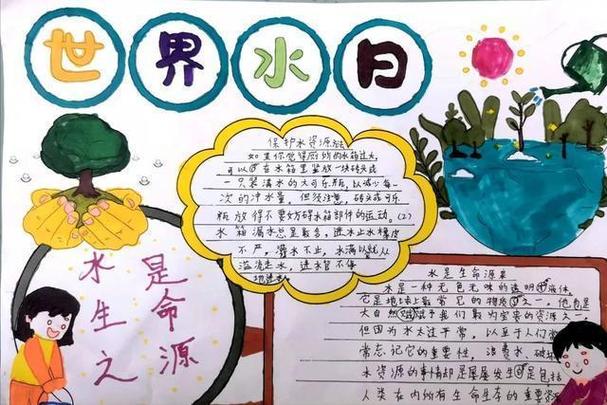 世界水日
保护水资源方法
如果你觉得厕所的水箱过大,
可以在水箱里竖放一块砖头或
一只装满水的大可乐瓶,以减少每一
次的冲水量,但须注意,砖头或可乐
瓶放得不要妨碍水箱部件的运动。(2)
水箱漏水总是最多,进水止水橡皮
不严,灌水不止,水满以就从
溢流走水,进水管不停
地进水
水是生命之源
水是生命源泉
水是一种无色无味的透明液体,
它是地球上最常见的物质之一,他也是
大自然赋予我们最为宝贵的资源之一,
但因为水太过平常,以至于人们常
常忘记它的重要性,浪费水,破坏
水资源的事情却是屡屡发生的是包括
人类在内所有生命生存的重要资源